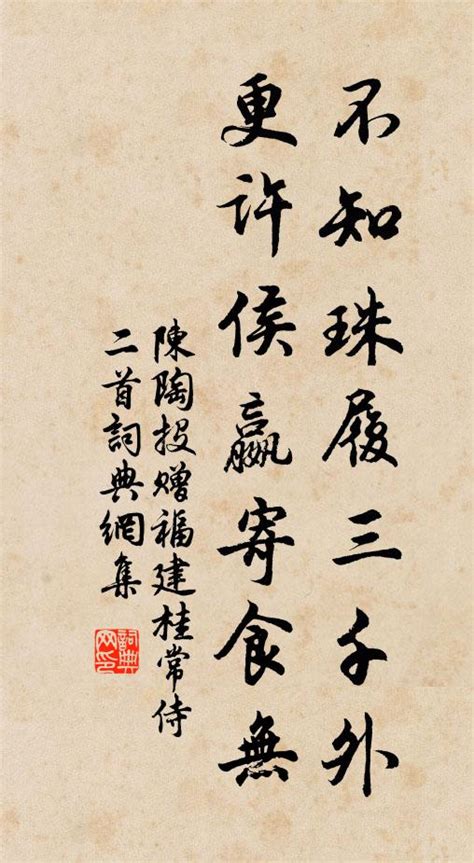 不知珠履三千外
更許侯嬴寄食無
陳陶投贈福建桂常侍
二首詞典網集
詞典網印